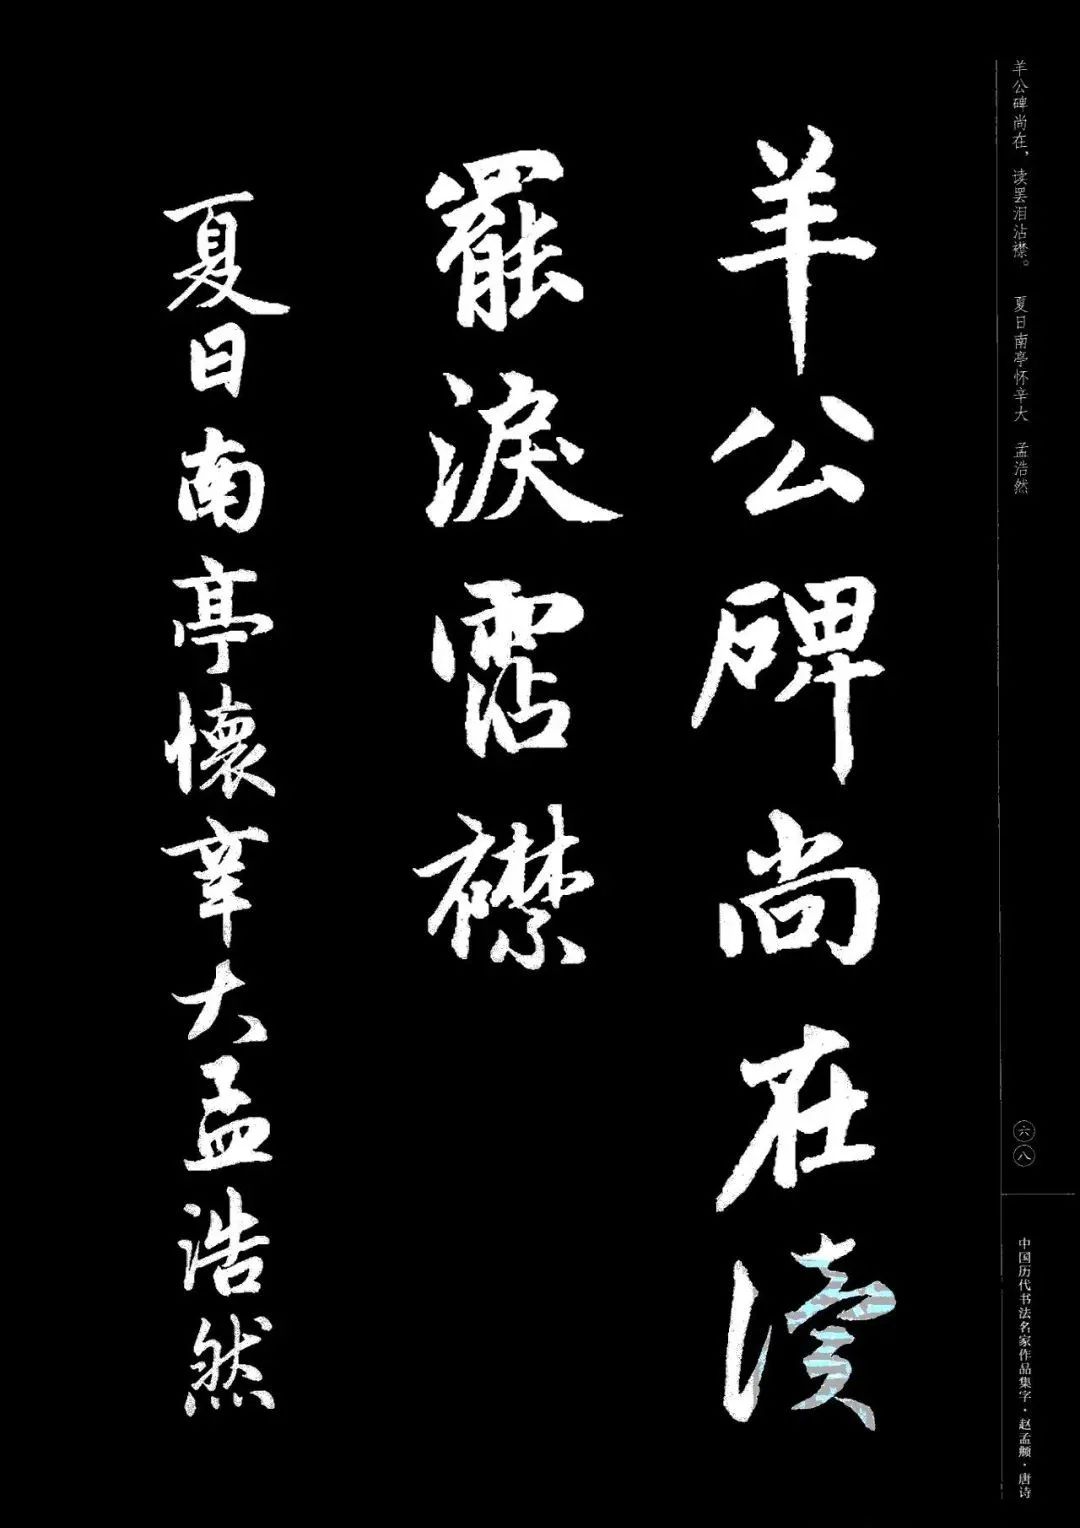 羊公碑尚在，读罢泪沾襟。　夏日南亭怀辛大　孟浩然
六八
中国历代书法名家作品集字·赵孟頫·唐诗
羊公碑尚在讀
罷淚霑襟
夏日南亭懷辛大孟浩然